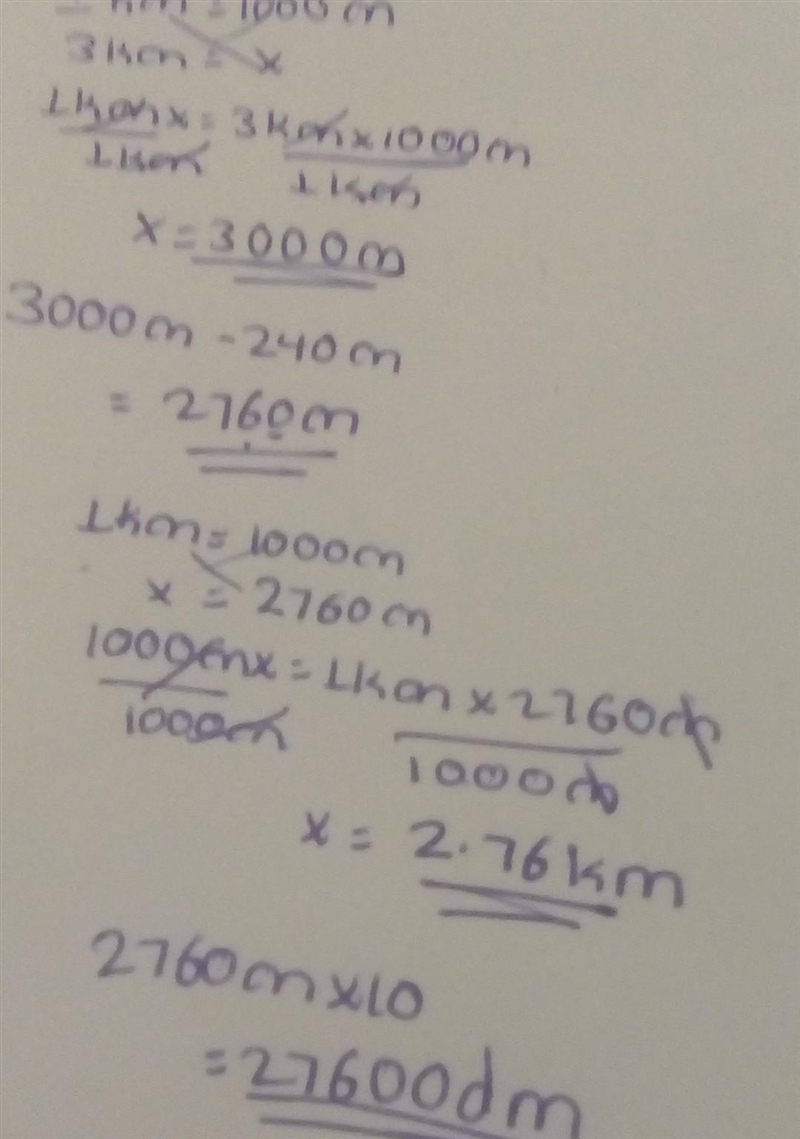 km = 1000m
3km = x
1km x = 3km x 1000m
1km 1km
x = 3000m
3000m - 240m
= 2760m
1km = 1000m
x = 2760m
1000m x = 1km x 2760m
1000m 1000m
x = 2.76km
2760m x 10
= 27600dm